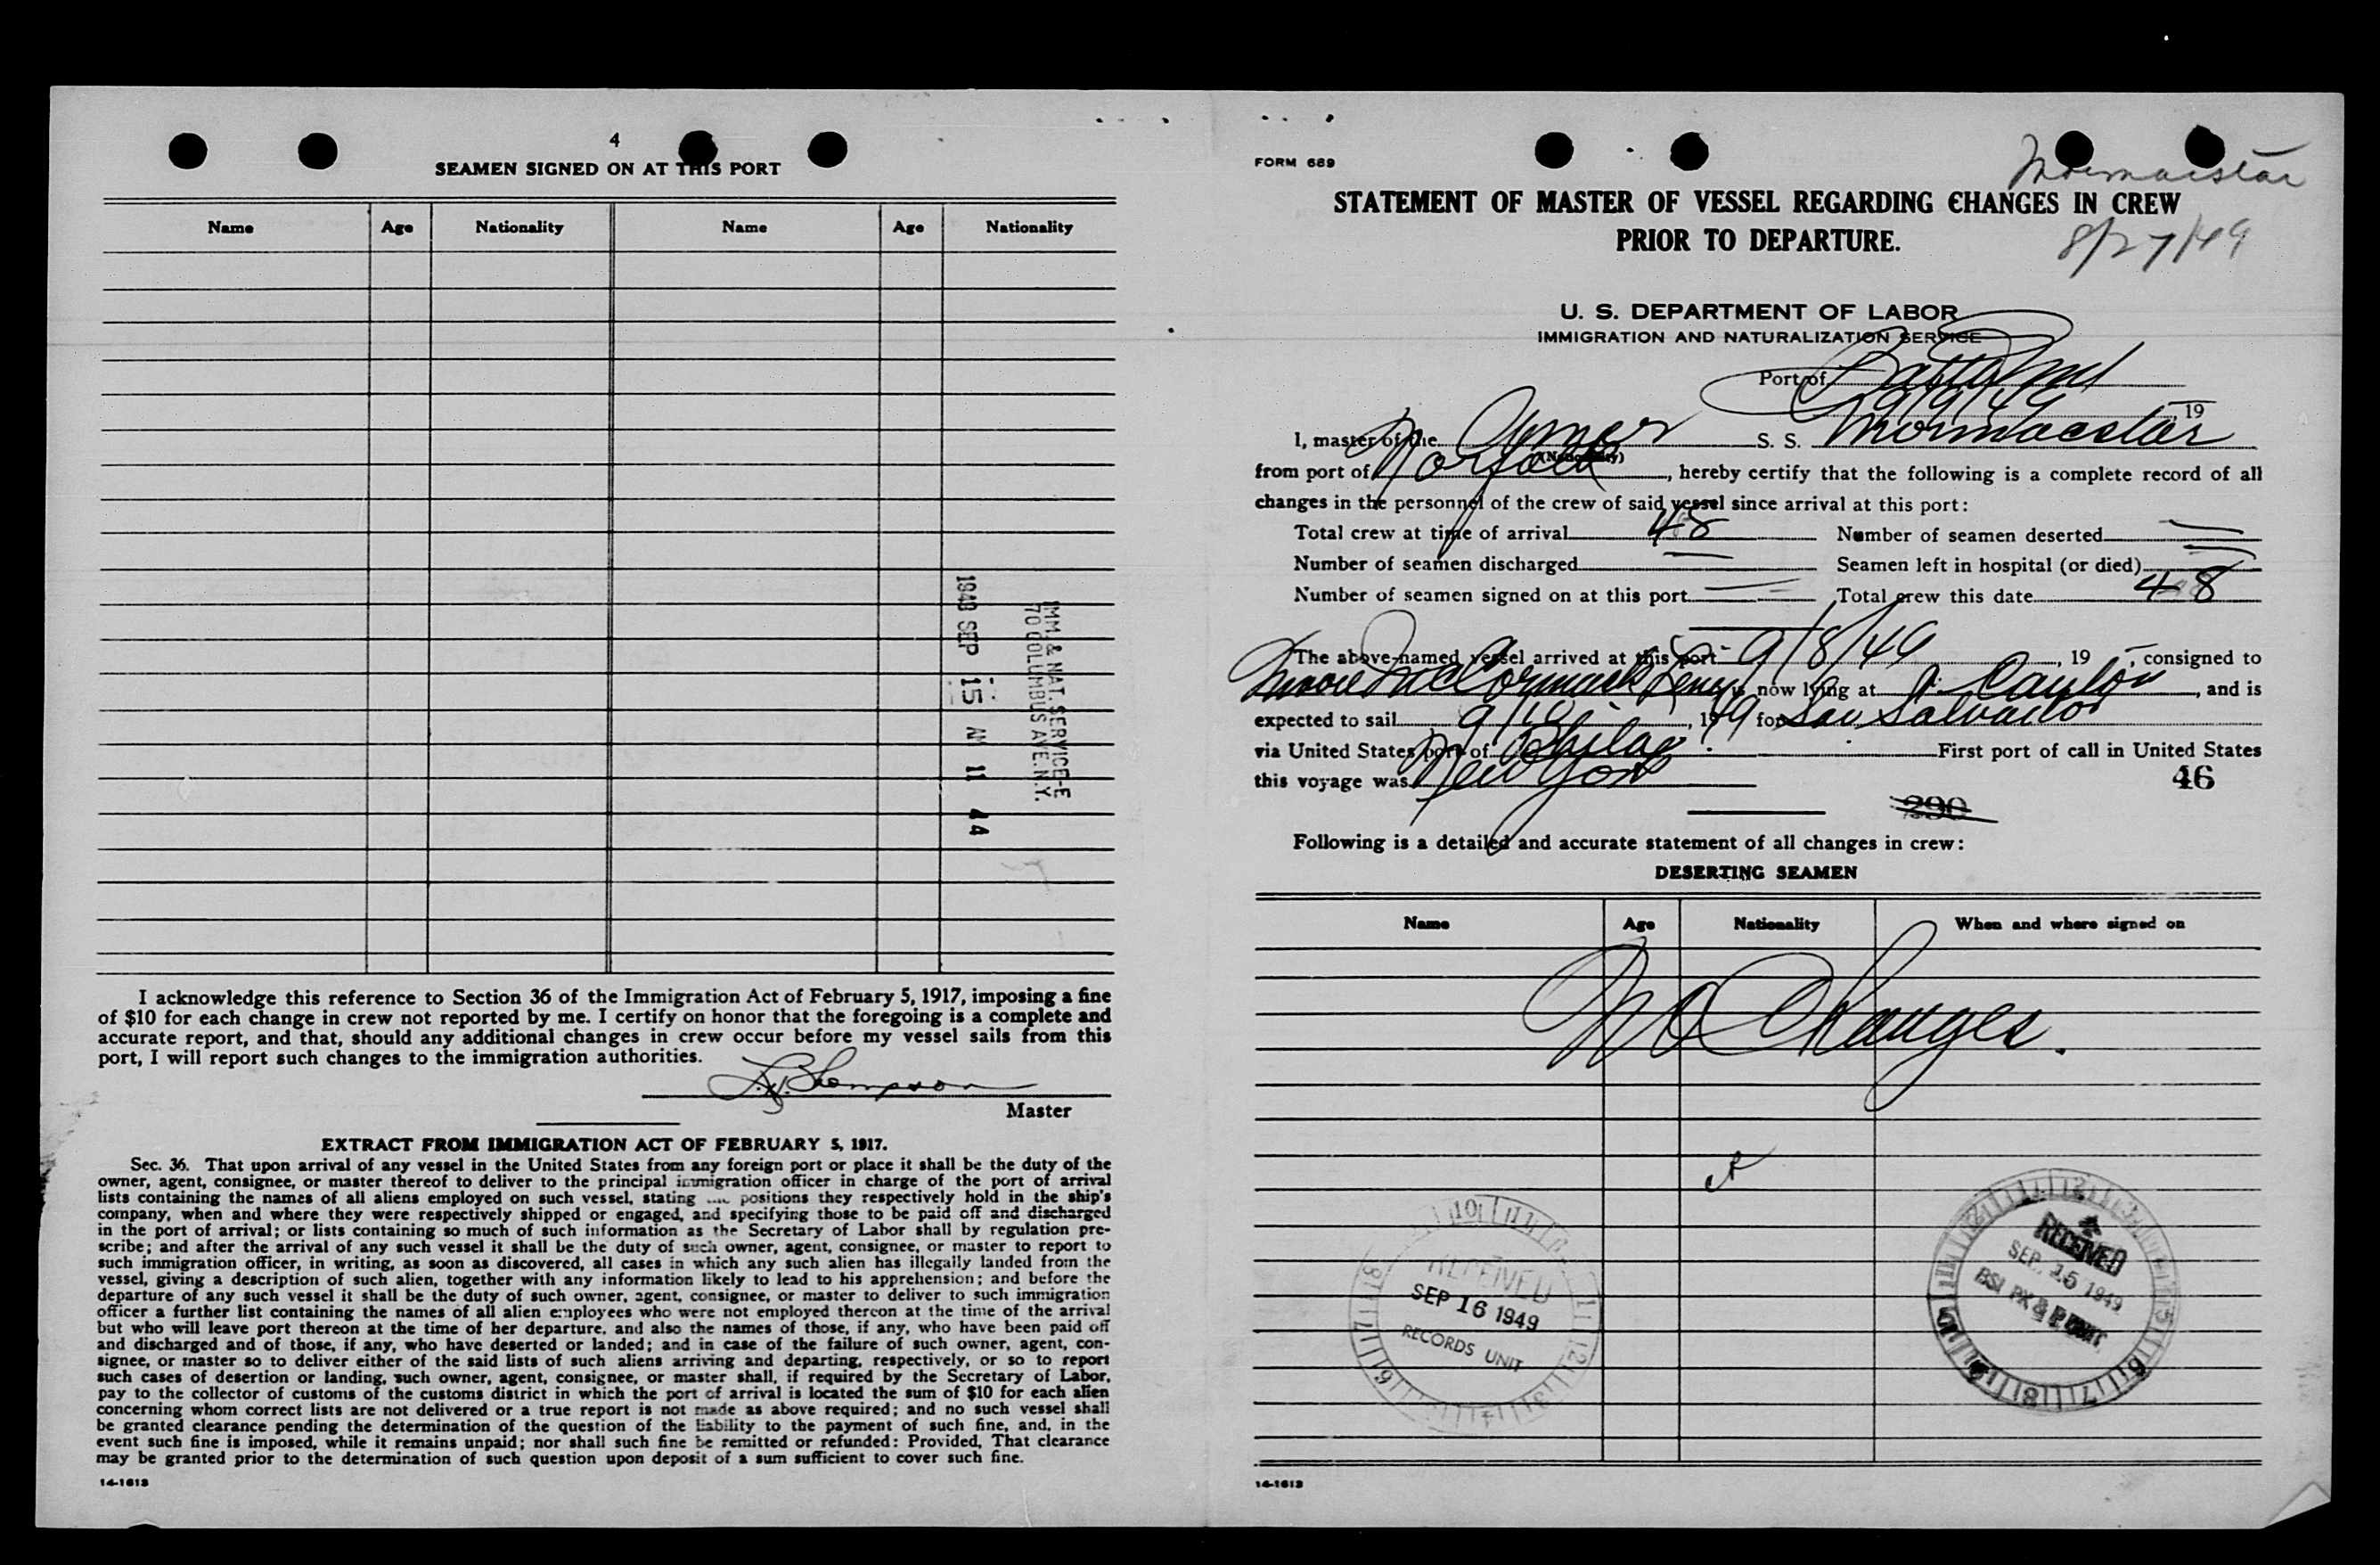 4
SEAMEN SIGNED ON AT THIS PORT
Name Age Nationality Name Age Nationality
IMM. & NAT. SERVICE-E
70 COLUMBUS AVE. N.Y.
1949 SEP 15 AM 11 44
I acknowledge this reference to Section 36 of the Immigration Act of February 5, 1917, imposing a fine
of $10 for each change in crew not reported by me. I certify on honor that the foregoing is a complete and
accurate report, and that, should any additional changes in crew occur before my vessel sails from this
port, I will report such changes to the immigration authorities.
Thompson
Master
EXTRACT FROM IMMIGRATION ACT OF FEBRUARY 5, 1917.
Sec. 36. That upon arrival of any vessel in the United States from any foreign port or place it shall be the duty of the
owner, agent, consignee, or master thereof to deliver to the principal immigration officer in charge of the port of arrival
lists containing the names of all aliens employed on such vessel, stating the positions they respectively hold in the ship's
company, when and where they were respectively shipped or engaged, and specifying those to be paid off and discharged
in the port of arrival; or lists containing so much of such information as the Secretary of Labor shall by regulation pre-
scribe; and after the arrival of any such vessel it shall be the duty of such owner, agent, consignee, or master to report to
such immigration officer, in writing, as soon as discovered, all cases in which any such alien has illegally landed from the
vessel, giving a description of such alien, together with any information likely to lead to his apprehension; and before the
departure of any such vessel it shall be the duty of such owner, agent, consignee, or master to deliver to such immigration
officer a further list containing the names of all alien employees who were not employed thereon at the time of the arrival
but who will leave port thereon at the time of her departure, and also the names of those, if any, who have been paid off
and discharged and of those, if any, who have deserted or landed; and in case of the failure of such owner, agent, con-
signee, or master so to deliver either of the said lists of such aliens arriving and departing, respectively, or so to report
such cases of desertion or landing, such owner, agent, consignee, or master shall, if required by the Secretary of Labor,
pay to the collector of customs of the customs district in which the port of arrival is located the sum of $10 for each alien
concerning whom correct lists are not delivered or a true report is not made as above required; and no such vessel shall
be granted clearance pending the determination of the question of the liability to the payment of such fine, and, in the
event such fine is imposed, while it remains unpaid; nor shall such fine be remitted or refunded: Provided, That clearance
may be granted prior to the determination of such question upon deposit of a sum sufficient to cover such fine.
14-1613
FORM 689
Mormacstar
STATEMENT OF MASTER OF VESSEL REGARDING CHANGES IN CREW
PRIOR TO DEPARTURE.
8/27/49
U. S. DEPARTMENT OF LABOR
IMMIGRATION AND NATURALIZATION SERVICE
Port of
9/9/49, 19
I, master of the Amer S. S. Mormacstar
(Nationality)
from port of Norfolk, hereby certify that the following is a complete record of all
changes in the personnel of the crew of said vessel since arrival at this port:
Total crew at time of arrival 48 Number of seamen deserted
Number of seamen discharged Seamen left in hospital (or died)
Number of seamen signed on at this port Total crew this date 48
The above-named vessel arrived at this port 9/8/49, 19 , consigned to
Moore McCormack Lines is now lying at Canton, and is
expected to sail 9/10, 1949 for San Salvador
via United States port of Phila. First port of call in United States
this voyage was New York
46
290
Following is a detailed and accurate statement of all changes in crew:
DESERTING SEAMEN
Name Age Nationality When and where signed on
No Changes.
RECEIVED
SEP 16 1949
RECORDS UNIT
RECEIVED
SEP 15 1949
14-1613